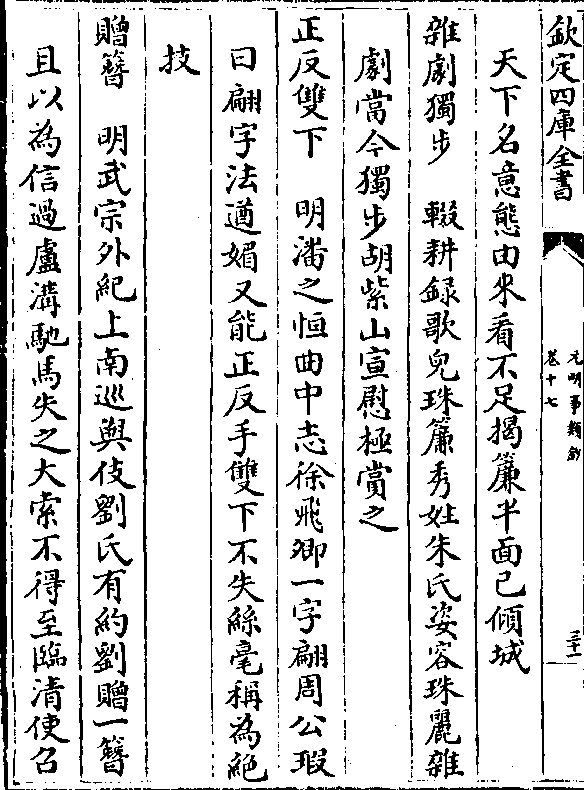 欽定四庫全書
元明事類鈔
卷十七
三十一
天下名意態由來看不足揭簾半面已傾城
雜劇獨步　輟耕録歌兒珠簾秀姓朱氏姿容珠麗雜
劇當今獨步胡紫山宣慰極賞之
正反雙下　明潘之恒曲中志徐飛卿一字翩周公瑕
曰翩字法遒媚又能正反手雙下不失絲毫稱為絶
技
贈簪　明武宗外紀上南巡與伎劉氏有約劉贈一簪
且以為信過盧溝馳馬失之大索不得至臨清使召